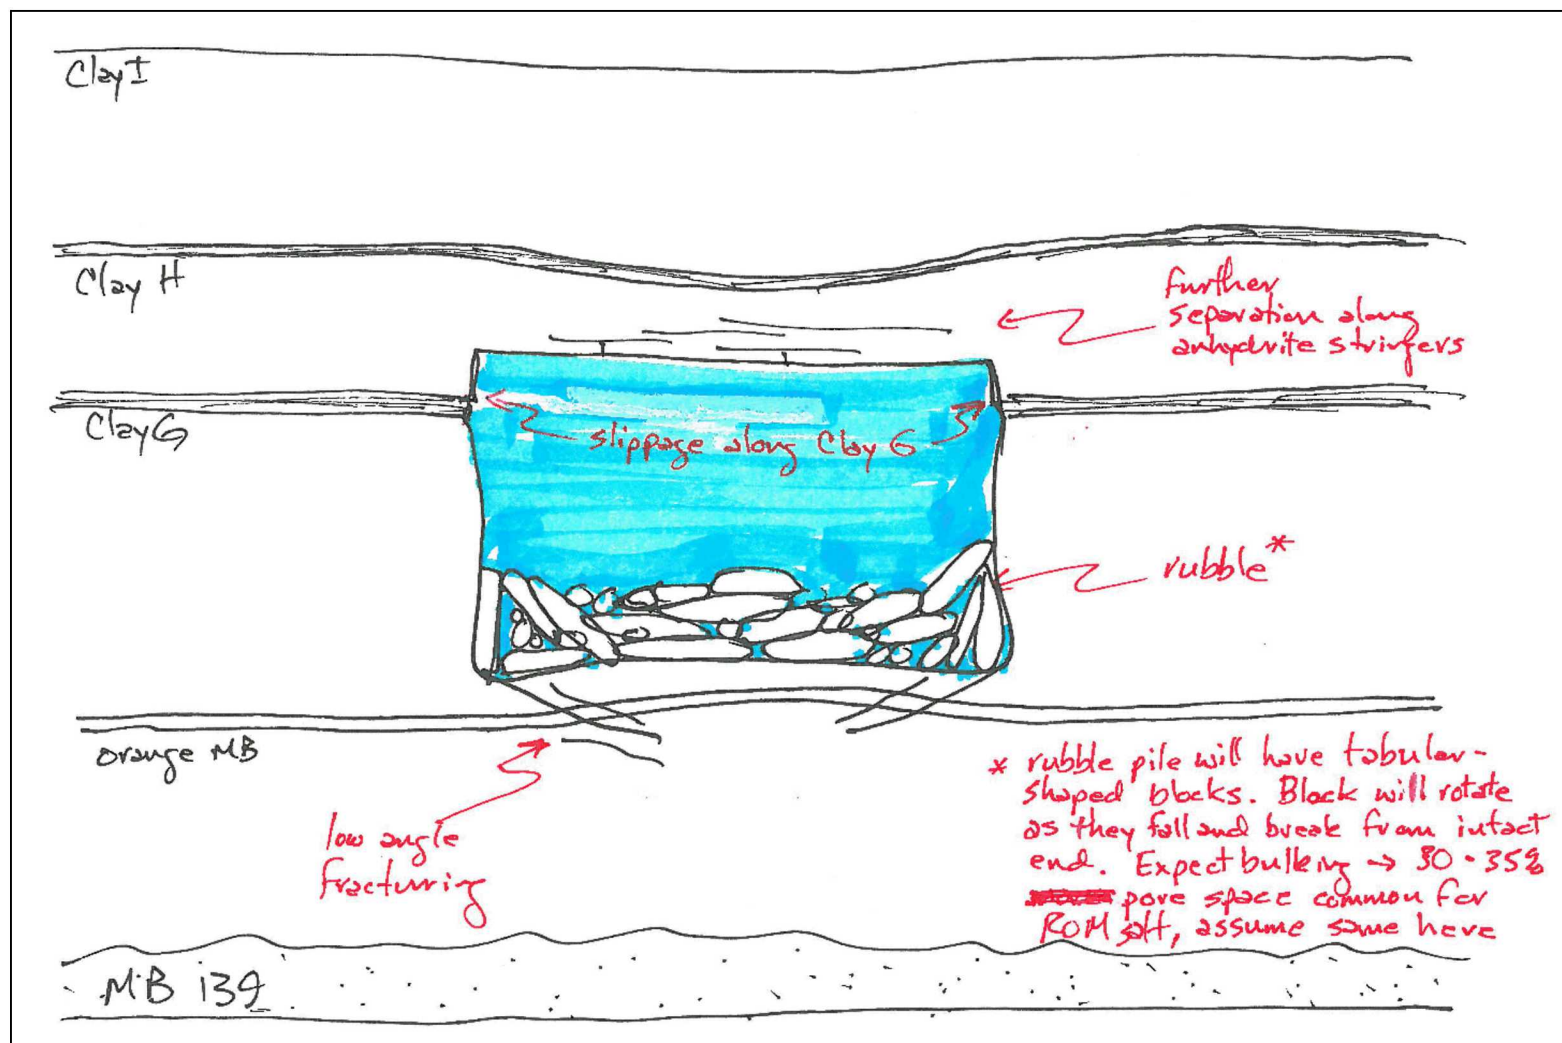 Clay I
Clay H
further
separation along
anhydrite stringers
Clay G
slippage along Clay G
rubble*
orange MB
low angle
fracturing
* rubble pile will have tabular-
shaped blocks. Block will rotate
as they fall and break from intact
end. Expect bulking → 30-35%
pore space common for
ROM salt, assume same here
MB 139